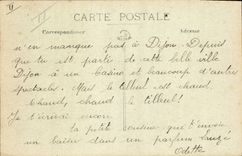 CARTE POSTALE
Correspondance Adresse
n'en manque pas à Dijon. Depuis
que tu est partie de cette belle ville
Dijon a un casino et beaucoup d'autres
spectacles. Mais le tilleul est chaud,
chaud, chaud le tilleul!
Je t'envoie
ta petite cousine que t'envoie
un baiser dans un parfum
Odette